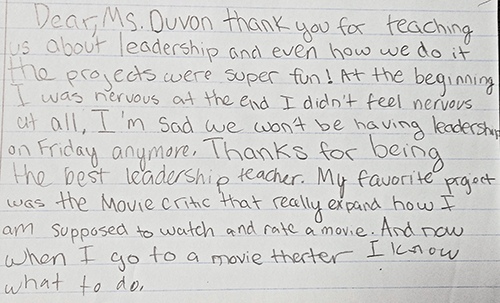 Dear, Ms. Duvon thank you for teaching
us about leadership and even how we do it
the projects were super fun! At the beginning
I was nervous at the end I didn't feel nervous
at all, I'm sad we won't be having leadership
on Friday anymore. Thanks for being
the best leadership teacher. My favorite project
was the Movie critic that really expand how I
am supposed to watch and rate a movie. And now
when I go to a movie therter I know
what to do.